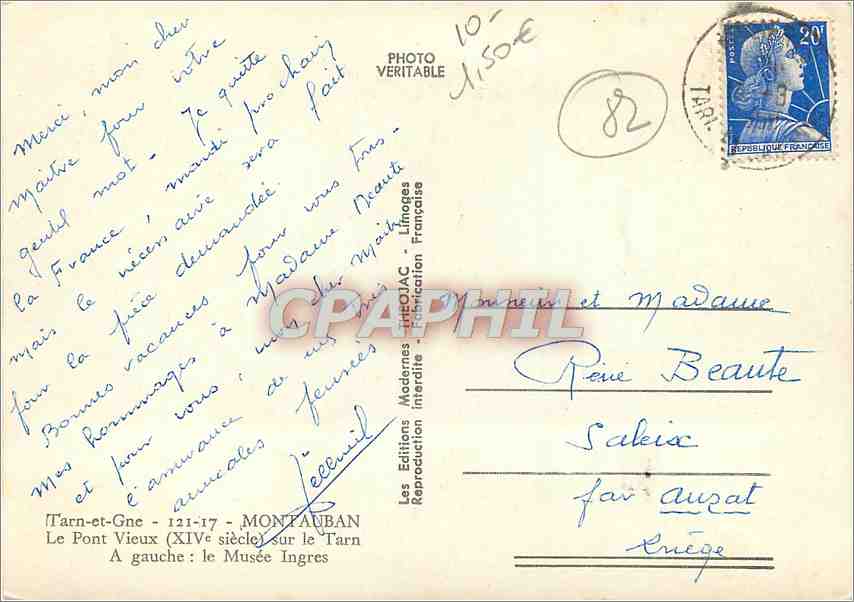 Merci, mon cher
Maître pour votre
gentil mot - Je quitte
la France, mardi prochain
mais le nécessaire sera fait
pour la pièce demandée.
Bonnes vacances pour vous tous -
Mes hommages à Madame Beaute
et pour vous, mon cher Maître
l'assurance de mes
amicales pensées
Tarn-et-Gne - 121-17 - MONTAUBAN
Le Pont Vieux (XIVe siècle) sur le Tarn
A gauche : le Musée Ingres
PHOTO
VERITABLE
10-
1,50€
82
Les Editions Modernes THEOJAC - Limoges
Reproduction interdite - Fabrication Française
POSTES
20F
REPUBLIQUE FRANÇAISE
TARN
CPAPHIL
Monsieur et Madame
René Beaute
Saleix
par Auzat
Ariège